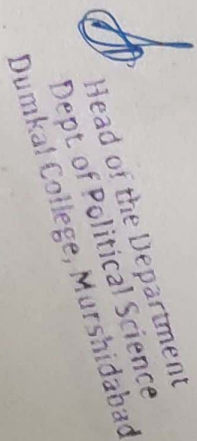 Head of the Department
Dept of Political Science
Dumkal College, Murshidabad